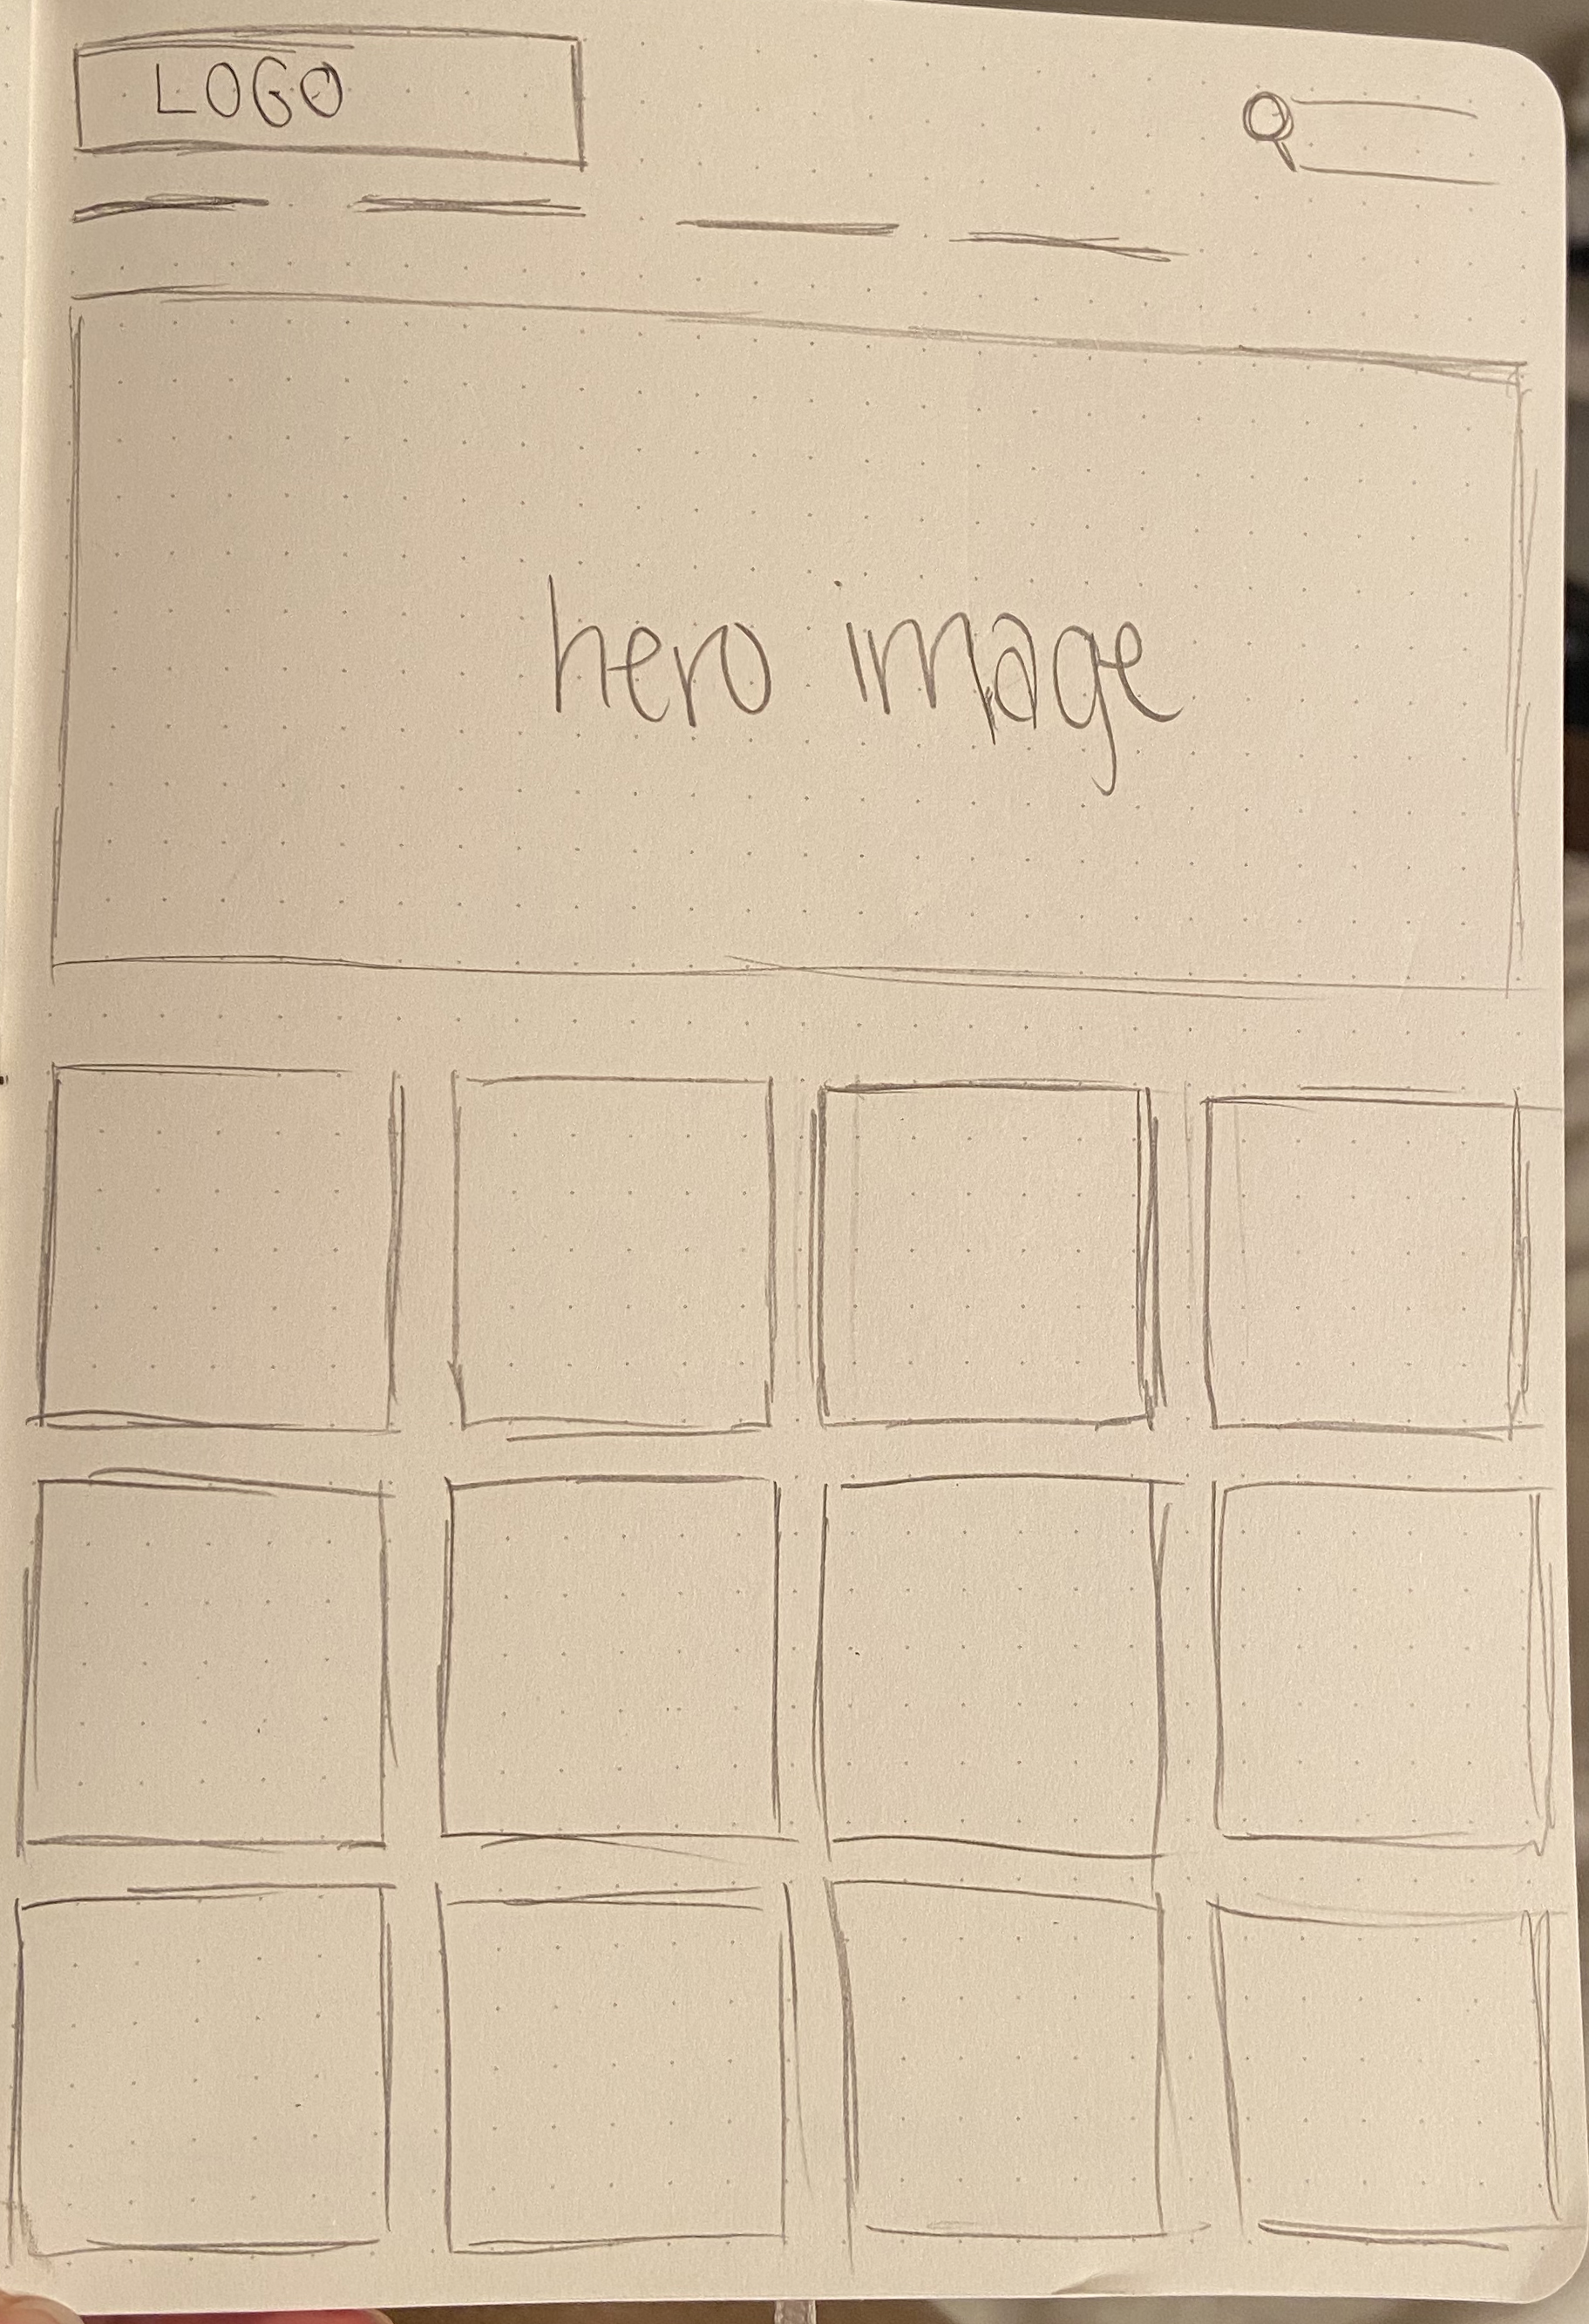 LOGO
hero image